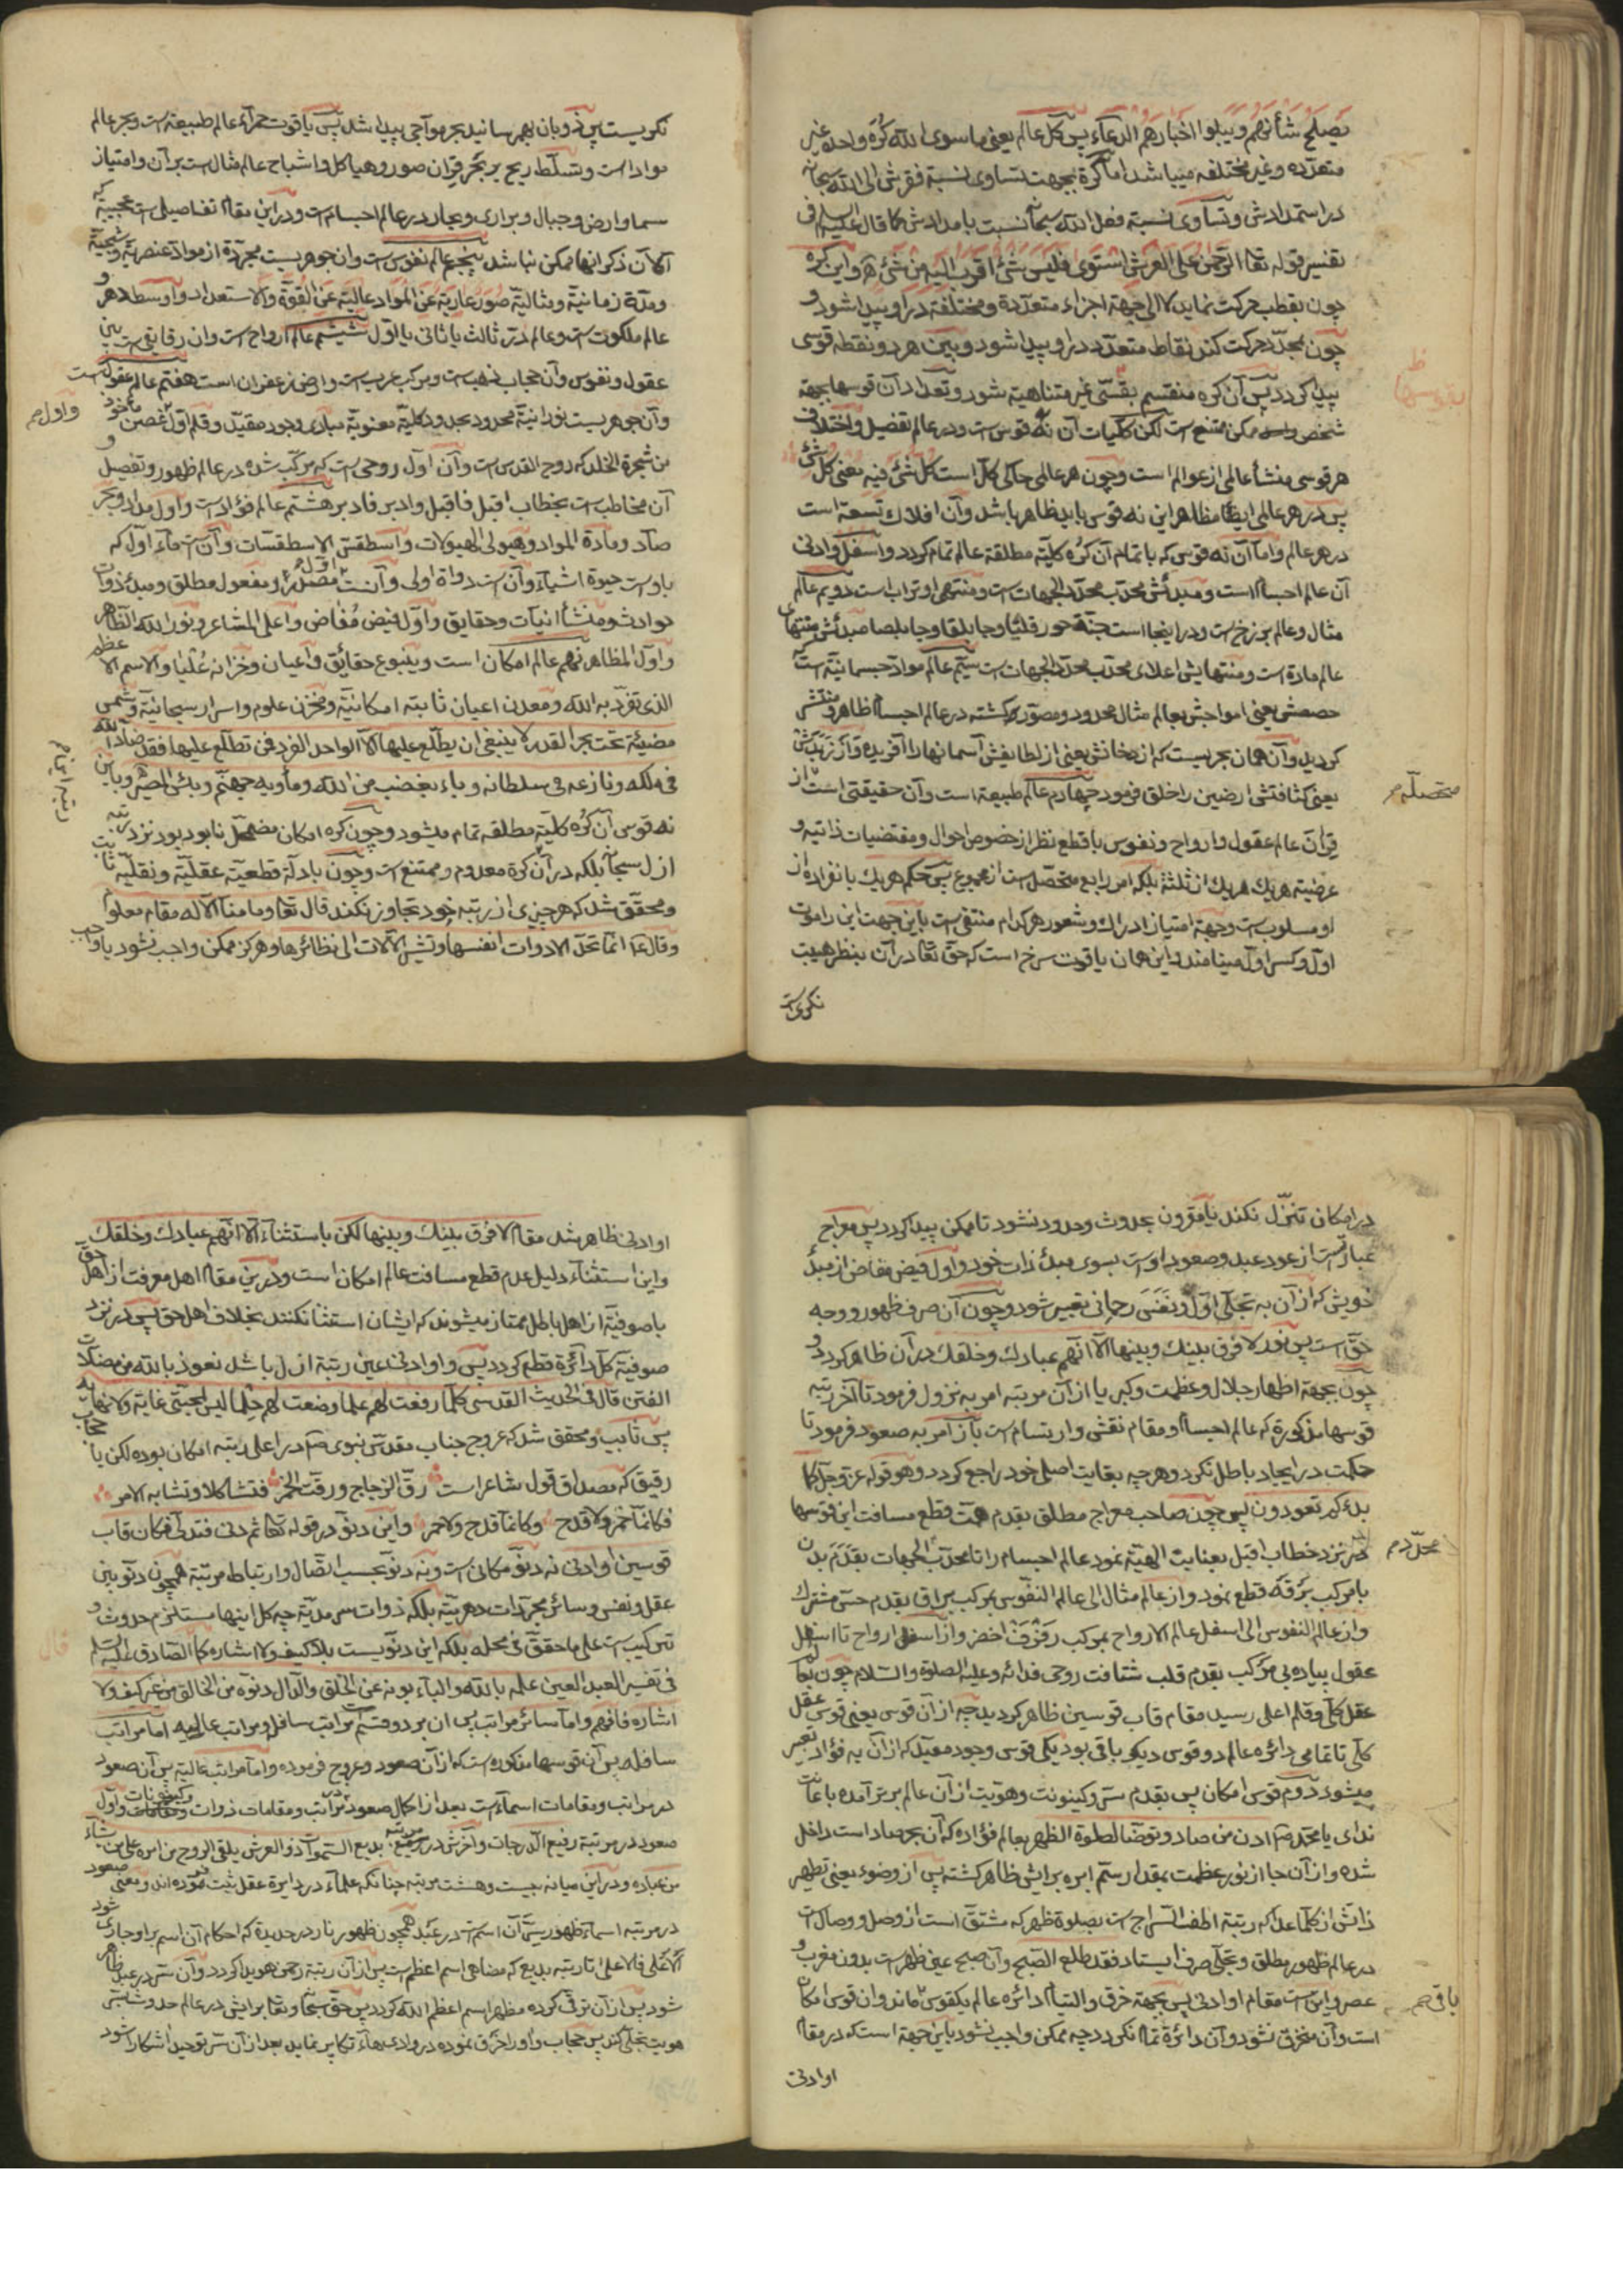 یصلح شأنهم ویبلوا اخبارهم الدعآء پس کل عالم یعنی ما سوی الله کره واحده غیر
متعدده وغیر مختلفه میباشد اما کره بجهت تساوی نسبة فقرش الی الله سبحانه
در استمدادش وتساوی نسبة فعل الله سبحانه نسبت بامدادش کما قال علیه السلم فی
تفسیر قوله تعا الرحمن علی العرش استوی فلیس شئ اقرب الیه من شئ آه واین کره
چون بقطب حرکت نماید لا الی جهة اجزاء متعددة ومختلفة در او پیدا شود و
چون بمحدد حرکت کند نقاط متعدد در او پیدا شود وبین هر دو نقطه قوسی
پیدا کردد پس آن کره منقسم بقسی غیر متناهیة شود وتعداد آن قوسها بجهة
شخص ممکن ممتنع است لکن کلیات آن نه قوس است ودر عالم تفصیل واختلاف
هر قوسی منشأ عالمی از عوالم است وچون هر عالمی حاکی کل است کل شئ فیه معنی کل شئ
پس در هر عالمی ایضا مظاهر این نه قوس باید ظاهر باشد وآن افلاک تسعة است
در هر عالم واما آن نه قوس که باتمام آن کره کلیه مطلقة عالم تمام کردد واسفل وادنی
آن عالم اجسام است ومبدئش محدب محدد الجهات است ومنتهی او تراب است دویم عالم
مثال وعالم برزخ است ودر اینجا است جنة حور قلیا وجابلقا وجابلصا مبدئش منتهای
عالم ماده است ومنتهایش اعلای محدب محدد الجهات است سیم عالم مواد جسمانیة است که
حصصش یعنی امواجش بعالم مثال محدود ومصور کشته در عالم اجسام ظاهر ومنتشر
کردید وآن همان بحریست که از دخانش یعنی از لطایفش آسمانها را آفریده واز زبدش
یعنی کثافتش ارضین را خلق فرمود چهارم عالم طبیعة است وآن حقیقتی است از
قران عالم عقول وارواح ونفوس با قطع نظر از خصوص احوال ومقتضیات ذاتیه و
عرضیته هر یک هر یک از ثلثة بلکه امر رابع متحصل است از مجموع پس حکم هر یک بانفراده از
او مسلوب است وجهة امتیاز ادراک وشعور هر کدام منتفی است باین جهت این را موت
اول وکسر اول مینامند واین همان یاقوت سرخ است که حق تعا در آن بنظر هیبت
متحصله م
نکریست
نکریست پس ذوبان بهم رسانید بحر مواجی پیدا شد پس یاقوت حمرآء عالم طبیعة است وبحر عالم
مواد است وتسلط ریح بر بحر قران صور وهیاکل واشباح عالم مثال است بر آن وامتیاز
سما وارض وجبال وبراری وبحار در عالم اجسام است ودر این مقام تفاصیلی است عجیبة که
الآن ذکر انها ممکن نباشد پنجم عالم نفوس است وان جوهریست مجردة از مواد عنصریة وشبحیة
ومدة زمانیة ومثالیة صور عاریة عن المواد عالیة عن القوة والاستعداد واوسط دهر و
عالم ملکوت است وعالم ذر ثالث یا ثانی یا اول ششم عالم ارواح است وان رقایقی است بین
عقول ونفوس وآن حجاب ذهب است ومرکب غریب است وارض زعفران است هفتم عالم عقول است
وآن جوهریست نورانیة محدود بحدود کلیة معنویة مبادی وجود مقید وقلم اول غصن ماخوذ
واول م
من شجرة الخلد که روح القدس است وآن اول روحی است که مرکب شده در عالم ظهور وتفصیل و
آن مخاطب است بخطاب اقبل فاقبل وادبر فادبر هشتم عالم فؤاد است واول مداد وبحر
صاد ومادة المواد وهیولی الهیولات واسطقس الاسطقسات وآن است مآء اول که
باوست حیوة اشیآء وآن است دواة اولی وآنست مصدر اول ومفعول مطلق ومبدء ذوات
حوادث ومنشأ انیات وحقایق واول فیض مفاض واعلی المشاعر ونور الله الظاهر
واول المظاهر نهم عالم امکان است وینبوع حقائق واعیان وخزانه علیا والاسم الاعظم
الذی تفرد به الله ومعدن اعیان ثابته امکانیة ومخزن علوم واسرار سبحانیة وشمس
مضیئة تحت بحر القدر لا ینبغی ان یطلع علیها الا الواحد الفرد فمن تطلع علیها فقد ضاد الله
فی ملکه ونازعه فی سلطانه وباء بغضب من الله ومأویه جهنم وبئس المصیر وباین
نه قوس آن کره کلیة مطلقه تمام میشود وچون کره امکان مضمحل نابود بود نزد رتبه
ازل سبحانه بلکه در آن کرة معدوم وممتنع است وچون بادلة قطعیة عقلیة ونقلیة ثابت
ومحقق شد که هر چیزی از رتبه خود تجاوز نکند قال تعا وما منا الا له مقام معلوم
وقال ع انما تحد الادوات انفسها وتشیر الآلات الی نظائرها وهرکز ممکن واجب نشود یا واجب
در امکان تنزل نکند یا مقرون بحدوث وحدود نشود تا ممکن پیدا کردد پس معراج
عبارتست از عود عبد وصعود اوست بسوی مبدء ذات خود واول فیض مفاض از مبدأ
خویش که از آن به تجلی اول ونفس رحمانی تعبیر شود وچون آن صرف ظهور ووجه
حق است پس نور لا فرق بینک وبینها الا انهم عبادک وخلقک در آن ظاهر کردد و
چون بجهة اظهار جلال وعظمت وکبریا از آن مرتبه امر به نزول فرمود تا آخر رتبه
قوسها مذکورة که عالم اجسام ومقام نقش وارتسام است باز امر به صعود فرمود تا
حکمت در ایجاد باطل نکردد وهر چه بغایت اصلی خود راجع کردد وهو قوله عز وجل کما
بدءکم تعودون پس چون صاحب معراج مطلق بقدم همت قطع مسافت این قوسها
نزد خطاب اقبل بعنایت الهیة نمود عالم اجسام را تا محدب الجهات بقدم بدن
محدد م
با مرکب برقه قطع نمود واز عالم مثال الی عالم النفوس بمرکب براق بقدم حس مشترک
واز عالم النفوس الی اسفل عالم الارواح بمرکب رفرف اخضر واز اسفل ارواح تا اسفل
عقول پیاده بی مرکب بقدم قلب شتافت روحی فدائه وعلیه الصلوة والسلام چون بعالم
عقل کلی وقلم اعلی رسید مقام قاب قوسین ظاهر کردید چه از آن قوس یعنی قوس عقل
کلی تا تمامی دائره عالم دو قوس دیکر باقی بود یکی قوس وجود مقید که از آن به فؤاد تعبیر
میشود دوم قوس امکان پس بقدم سر وکینونت وهویت از آن عالم برتر آمده باعانت
ندای یا محمد ص ادن من صاد وتوضأ لصلوة الظهر بعالم فؤاد که آن بحر صاد است داخل
شده واز آن جا از نور عظمت بمقدار سم ابره برایش ظاهر کشته پس از وضوء یعنی تطهیر
ذاتش از کلما عداه که رتبة اطفئ السراج است بصلوة ظهر که مشتق است از وصل ووصال است
در عالم ظهور مطلق وتجلی صرف ایستاد فقد طلع الصبح وآن صبح عین ظهر است بدون مغرب و
عصر واینست مقام او ادنی پس بجهة خرق والتیام دائره عالم یکقوس ماند وان قوس امکان
باقی م
است وآن منخرق نشود وآن دائرة تمام نکردد چه ممکن واجب نشود باین جهة است که در مقام
او ادنی
او ادنی ظاهر شد مقام لا فرق بینک وبینها لکن باستثنآء الا انهم عبادک وخلقک
واین استثنآء دلیل عدم قطع مسافت عالم امکان است ودر این مقام اهل معرفت از اهل حق
با صوفیة از اهل باطل ممتاز میشوند که ایشان استثنا نکنند بخلاف اهل حق پس در نزد
صوفیة کل دائرة قطع کردد پس واو ادنی عین رتبة ازل باشد نعوذ بالله من مضلات
الفتن قال فی الحدیث القدسی کلما رفعت لهم علما وضعت لهم حلما لیس لمحبتی غایة ولا نهایة
پس ثابت ومحقق شد که عروج جناب مقدس نبوی ص در اعلی رتبه امکان بوده لکن با حجاب
رقیق که مصداق قول شاعر است رق الزجاج ورقت الخمر فتشاکلا وتشابه الامر
فکانما خمر ولا قدح وکانما قدح ولا خمر واین دنو در قوله تعا ثم دنی فتدلی فکان قاب
قوسین او ادنی نه دنو مکانی است ونه دنو بحسب اتصال وارتباط مرتبة همچون دنو بین
عقل ونفس وسائر مجردات دهریة بلکه ذوات سرمدیة چه کل اینها مستلزم حدوث و
ترکیب است علی ما حقق فی محله بلکه این دنویست بلا کیف ولا اشاره کما الصادق علیه السلم
قال
فی تفسیر العبد العین علمه بالله والباء بونه عن الخلق والدال دنوه من الخالق من غیر کیف ولا
اشاره فافهم واما سائر مراتب پس ان بر دو قسم است مراتب سافله ومراتب عالیه اما مراتب
سافله پس آن قوسها مذکوره است که از آن صعود وعروج فرموده واما مراتب عالیة پس آن صعود
در مراتب ومقامات اسمآء است بعد از اکمال صعود در مراتب ومقامات ذوات وکینونات واول
صعود در مرتبة رفیع الدرجات وآخرش در مرتبه بدیع السموات ذو العرش یلقی الروح من امره علی من یشآء
من عباده ودر این میانه بیست وهشت مرتبه چنانکه علمآء در دایرة عقل ثبت نموده اند ومعنی صعود
در مرتبه اسمآء ظهور سر آن اسم است در عبد همچون ظهور نار در حدیدة که احکام آن اسم بر او جاری شود
الاعلی فالاعلی تا رتبه بدیع که مضاهی اسم اعظم است پس از آن رتبة رحمن هویدا کردد وآن سر در عبد ظاهر
شود پس از آن ترقی کرده مظهر اسم اعظم الله کردد پس حق سبحانه وتعا برایش در عالم حدوث بسر
هویت تجلی کند پس حجاب واو را خرق نموده در وادی هاء تکاپو نماید بعد از آن سر توحید آشکار شود